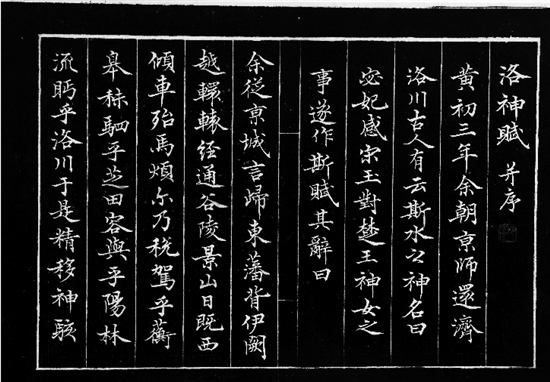 洛神賦 并序
黄初三年余朝京師還濟
洛川古人有云斯水之神名曰
宓妃感宋玉對楚王神女之
事遂作斯賦其辭曰
余從京城言歸東藩背伊闕
越轘轅經通谷陵景山日既西
傾車殆馬煩尓乃税駕乎蘅
皋秣駟乎芝田容與乎陽林
流眄乎洛川于是精移神駭